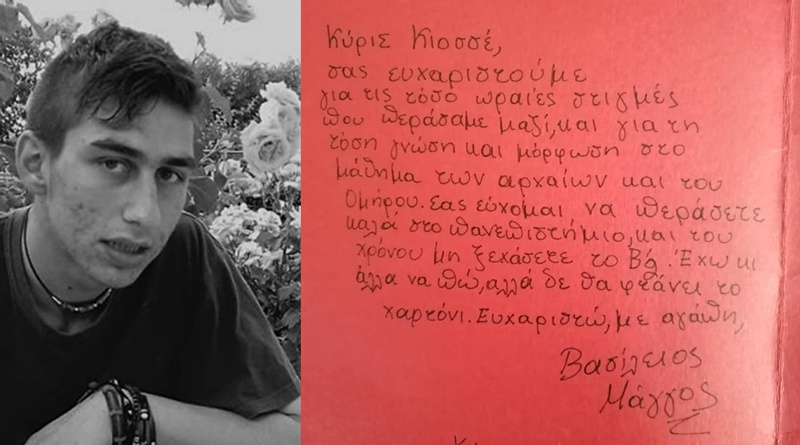 Κύριε Κιοσσέ,
σας ευχαριστούμε
για τις τόσο ωραίες στιγμές
που περάσαμε μαζί, και για τη
τόση γνώση και μόρφωση στο
μάθημα των αρχαίων και του
Ομήρου. Σας εύχομαι να περάσετε
καλά στο πανεπιστήμιο, και του
χρόνου μη ξεχάσετε το Β'2. Έχω κι
άλλα να πώ, αλλά δε θα φτάνει το
χαρτόνι. Ευχαριστώ, με αγάπη,
Βασίλειος
Μάγγος